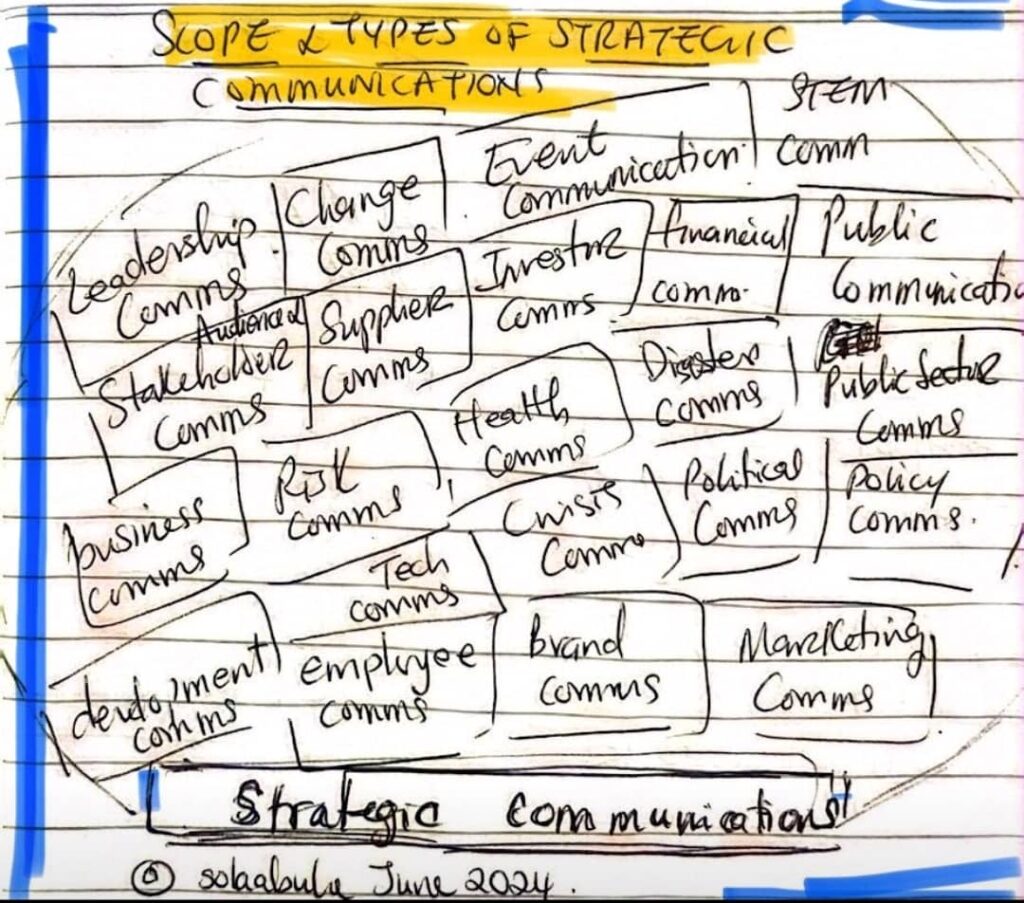 SCOPE & TYPES OF STRATEGIC
COMMUNICATIONS
STEM
comm
Event
Communication
Change
Comms
Leadership
Comms
Investor
Comms
financial
comm.
Public
Communicatio
Audience &
Stakeholder
Comms
Supplier
Comms
Health
Comms
Disaster
Comms
Public Sector
Comms
business
comms
Risk
Comms
Crisis
Comms
Political
Comms
Policy
Comms.
Tech
comms
development
comms
employee
comms
Brand
comms
Marketing
Comms
Strategic Communications
June 2024.